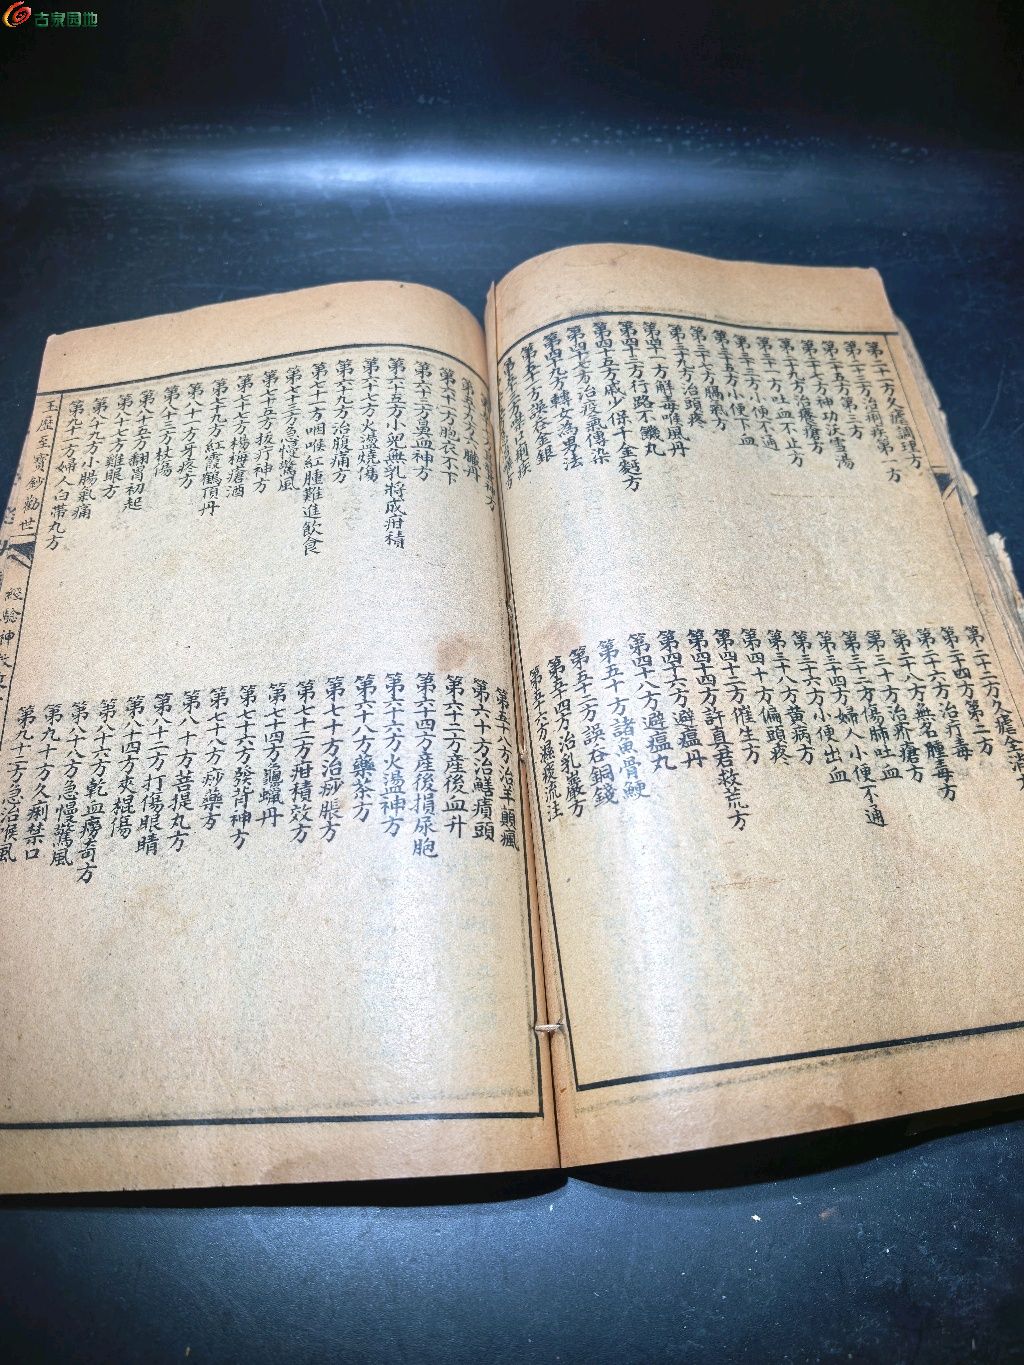 古泉园地
第二十一方久瘧調理方
第二十三方治痢疾第一方
第二十五方第三方
第二十七方神功沃雪湯
第二十九方治癢瘡方
第三十一方吐血不止方
第三十三方小便不通
第三十五方小便下血
第三十七方腸氣方
第三十九方治頭疼
第四十一方解毒喉風丹
第四十三方行路不饑丸
第四十五方戚少保千金鎚方
第四十七方治疫氣傳染
第四十九方轉女為男法
第五十一方誤吞金銀
第二十二方久瘧全消方
第二十四方第二方
第二十六方治疔毒
第二十八方無名腫毒方
第三十方治疥瘡方
第三十二方傷肺吐血
第三十四方婦人小便不通
第三十六方小便出血
第三十八方黃病方
第四十方偏頭疼
第四十二方催生方
第四十四方許真君救荒方
第四十六方避瘟丹
第四十八方避瘟丸
第五十方諸魚骨鯁
第五十二方誤吞銅錢
第五十四方治乳巖方
第五十六方濕痰流注
第五十九方八臟丹
第六十一方胞衣不下
第六十三方鼻血神方
第六十五方小兒無乳將成疳積
第六十七方火燙燒傷
第六十九方治腹痛方
第七十一方咽喉紅腫難進飲食
第七十三方急慢驚風
第七十五方拔疔神方
第七十七方楊梅瘡酒
第七十九方紅霞鶴頂丹
第八十一方牙疼方
第八十三方杖傷
第八十五方翻胃初起
第八十七方雞眼方
第八十九方小腸氣痛
第九十一方婦人白帶丸方
第五十八方治羊顛瘋
第六十方治鱔㿉頭
第六十二方產後血升
第六十四方產後損尿胞
第六十六方火盪神方
第六十八方藥茶方
第七十方治痧脹方
第七十二方疳積效方
第七十四方蠟丹
第七十六方發背神方
第七十八方痧藥方
第八十方菩提丸方
第八十二方打傷眼睛
第八十四方夾棍傷
第八十六方乾血癆奇方
第八十八方急慢驚風
第九十方久痢禁口
第九十二方急治喉風
玉歷至寶鈔勸世
經驗神